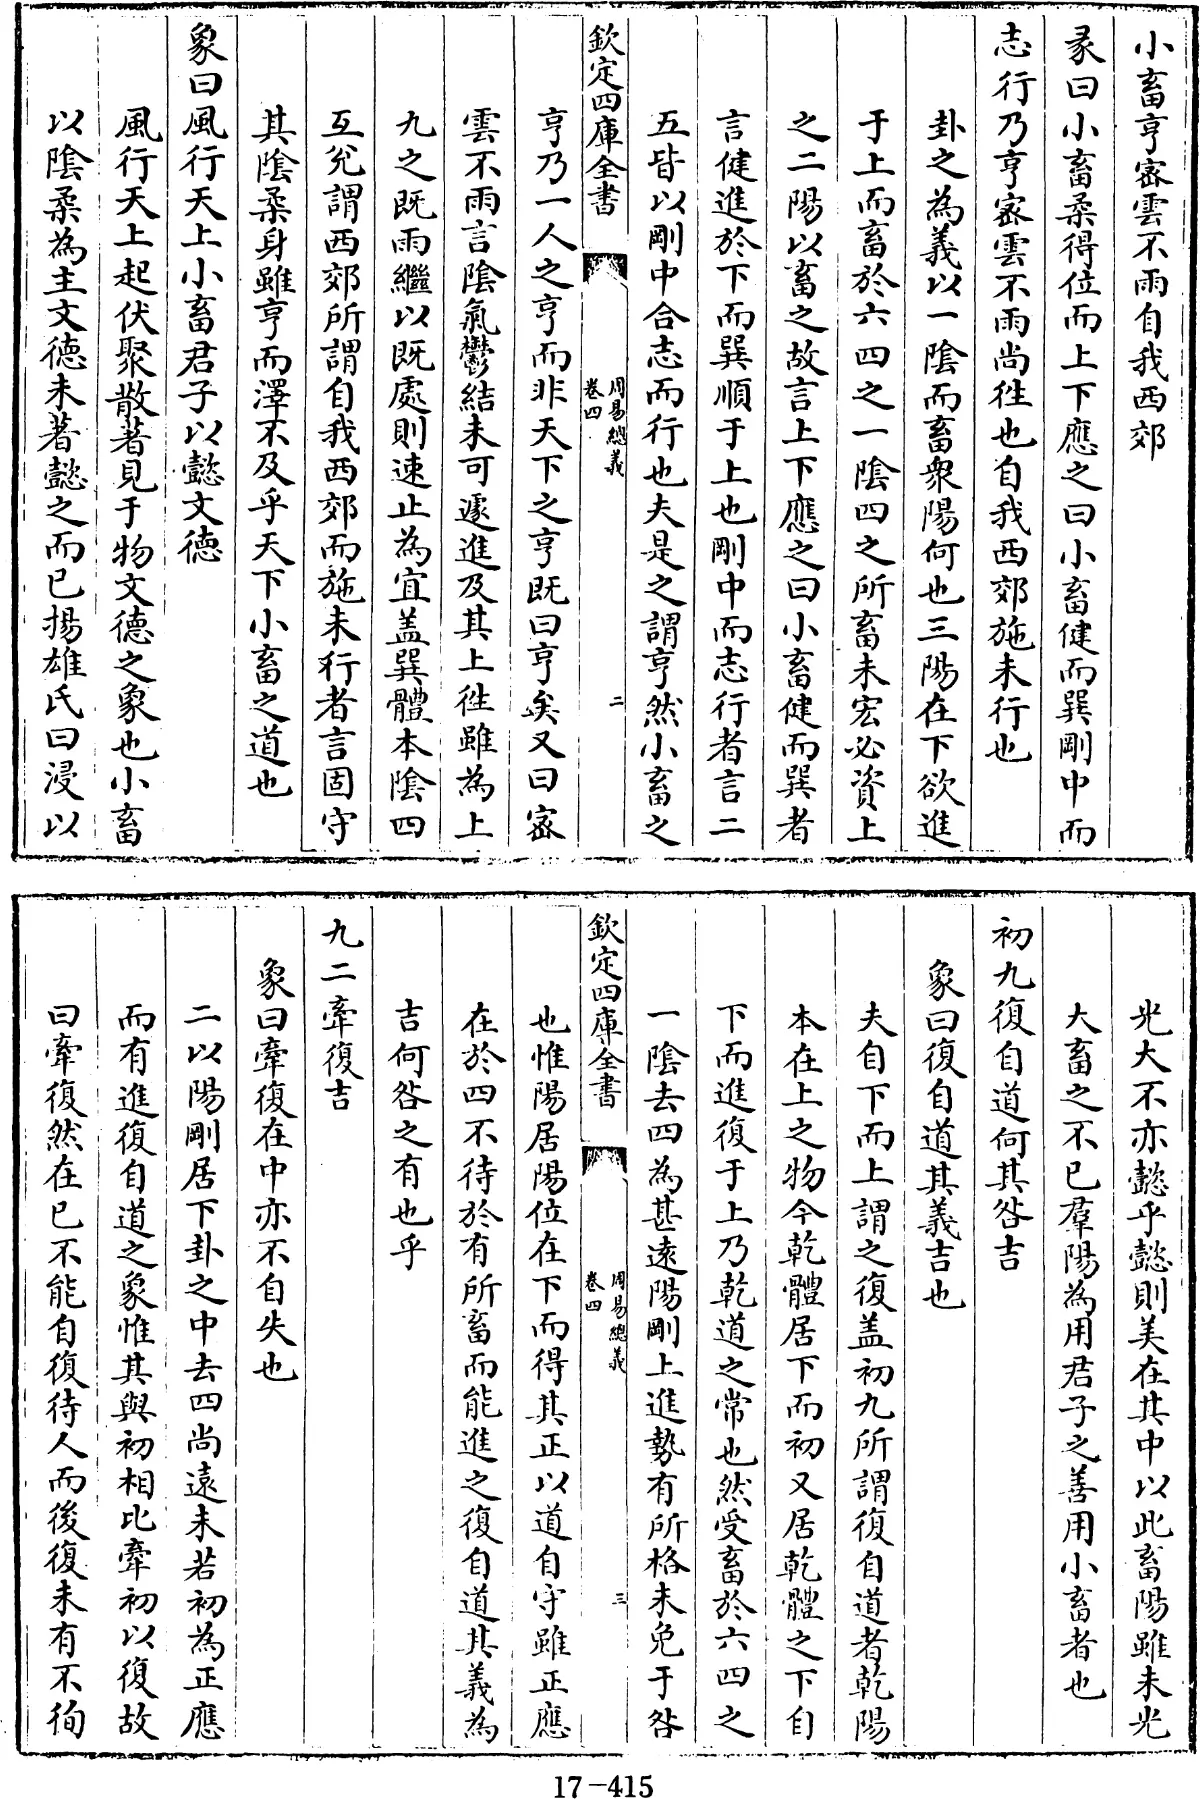 小畜亨宻雲不雨自我西郊
彖曰小畜柔得位而上下應之曰小畜健而巽剛中而
志行乃亨宻雲不雨尚徃也自我西郊施未行也
卦之為義以一陰而畜衆陽何也三陽在下欲進
于上而畜於六四之一陰四之所畜未宏必資上
之二陽以畜之故言上下應之曰小畜健而巽者
言健進於下而巽順于上也剛中而志行者言二
五皆以剛中合志而行也夫是之謂亨然小畜之
欽定四庫全書
周易總義
卷四
二
亨乃一人之亨而非天下之亨既曰亨矣又曰宻
雲不雨言陰氣鬱結未可遽進及其上徃雖為上
九之既雨繼以既處則速止為宜盖巽體本陰四
互兊謂西郊所謂自我西郊而施未行者言固守
其陰柔身雖亨而澤不及乎天下小畜之道也
象曰風行天上小畜君子以懿文德
風行天上起伏聚散著見于物文德之象也小畜
以陰柔為主文德未著懿之而已揚雄氏曰浸以
光大不亦懿乎懿則美在其中以此畜陽雖未光
大畜之不已羣陽為用君子之善用小畜者也
初九復自道何其咎吉
象曰復自道其義吉也
夫自下而上謂之復盖初九所謂復自道者乾陽
本在上之物今乾體居下而初又居乾體之下自
下而進復于上乃乾道之常也然受畜於六四之
一陰去四為甚遠陽剛上進勢有所格未免于咎
欽定四庫全書
周易總義
卷四
三
也惟陽居陽位在下而得其正以道自守雖正應
在於四不待於有所畜而能進之復自道其義為
吉何咎之有也乎
九二牽復吉
象曰牽復在中亦不自失也
二以陽剛居下卦之中去四尚遠未若初為正應
而有進復自道之象惟其與初相比牽初以復故
曰牽復然在已不能自復待人而後復未有不徇
17-415